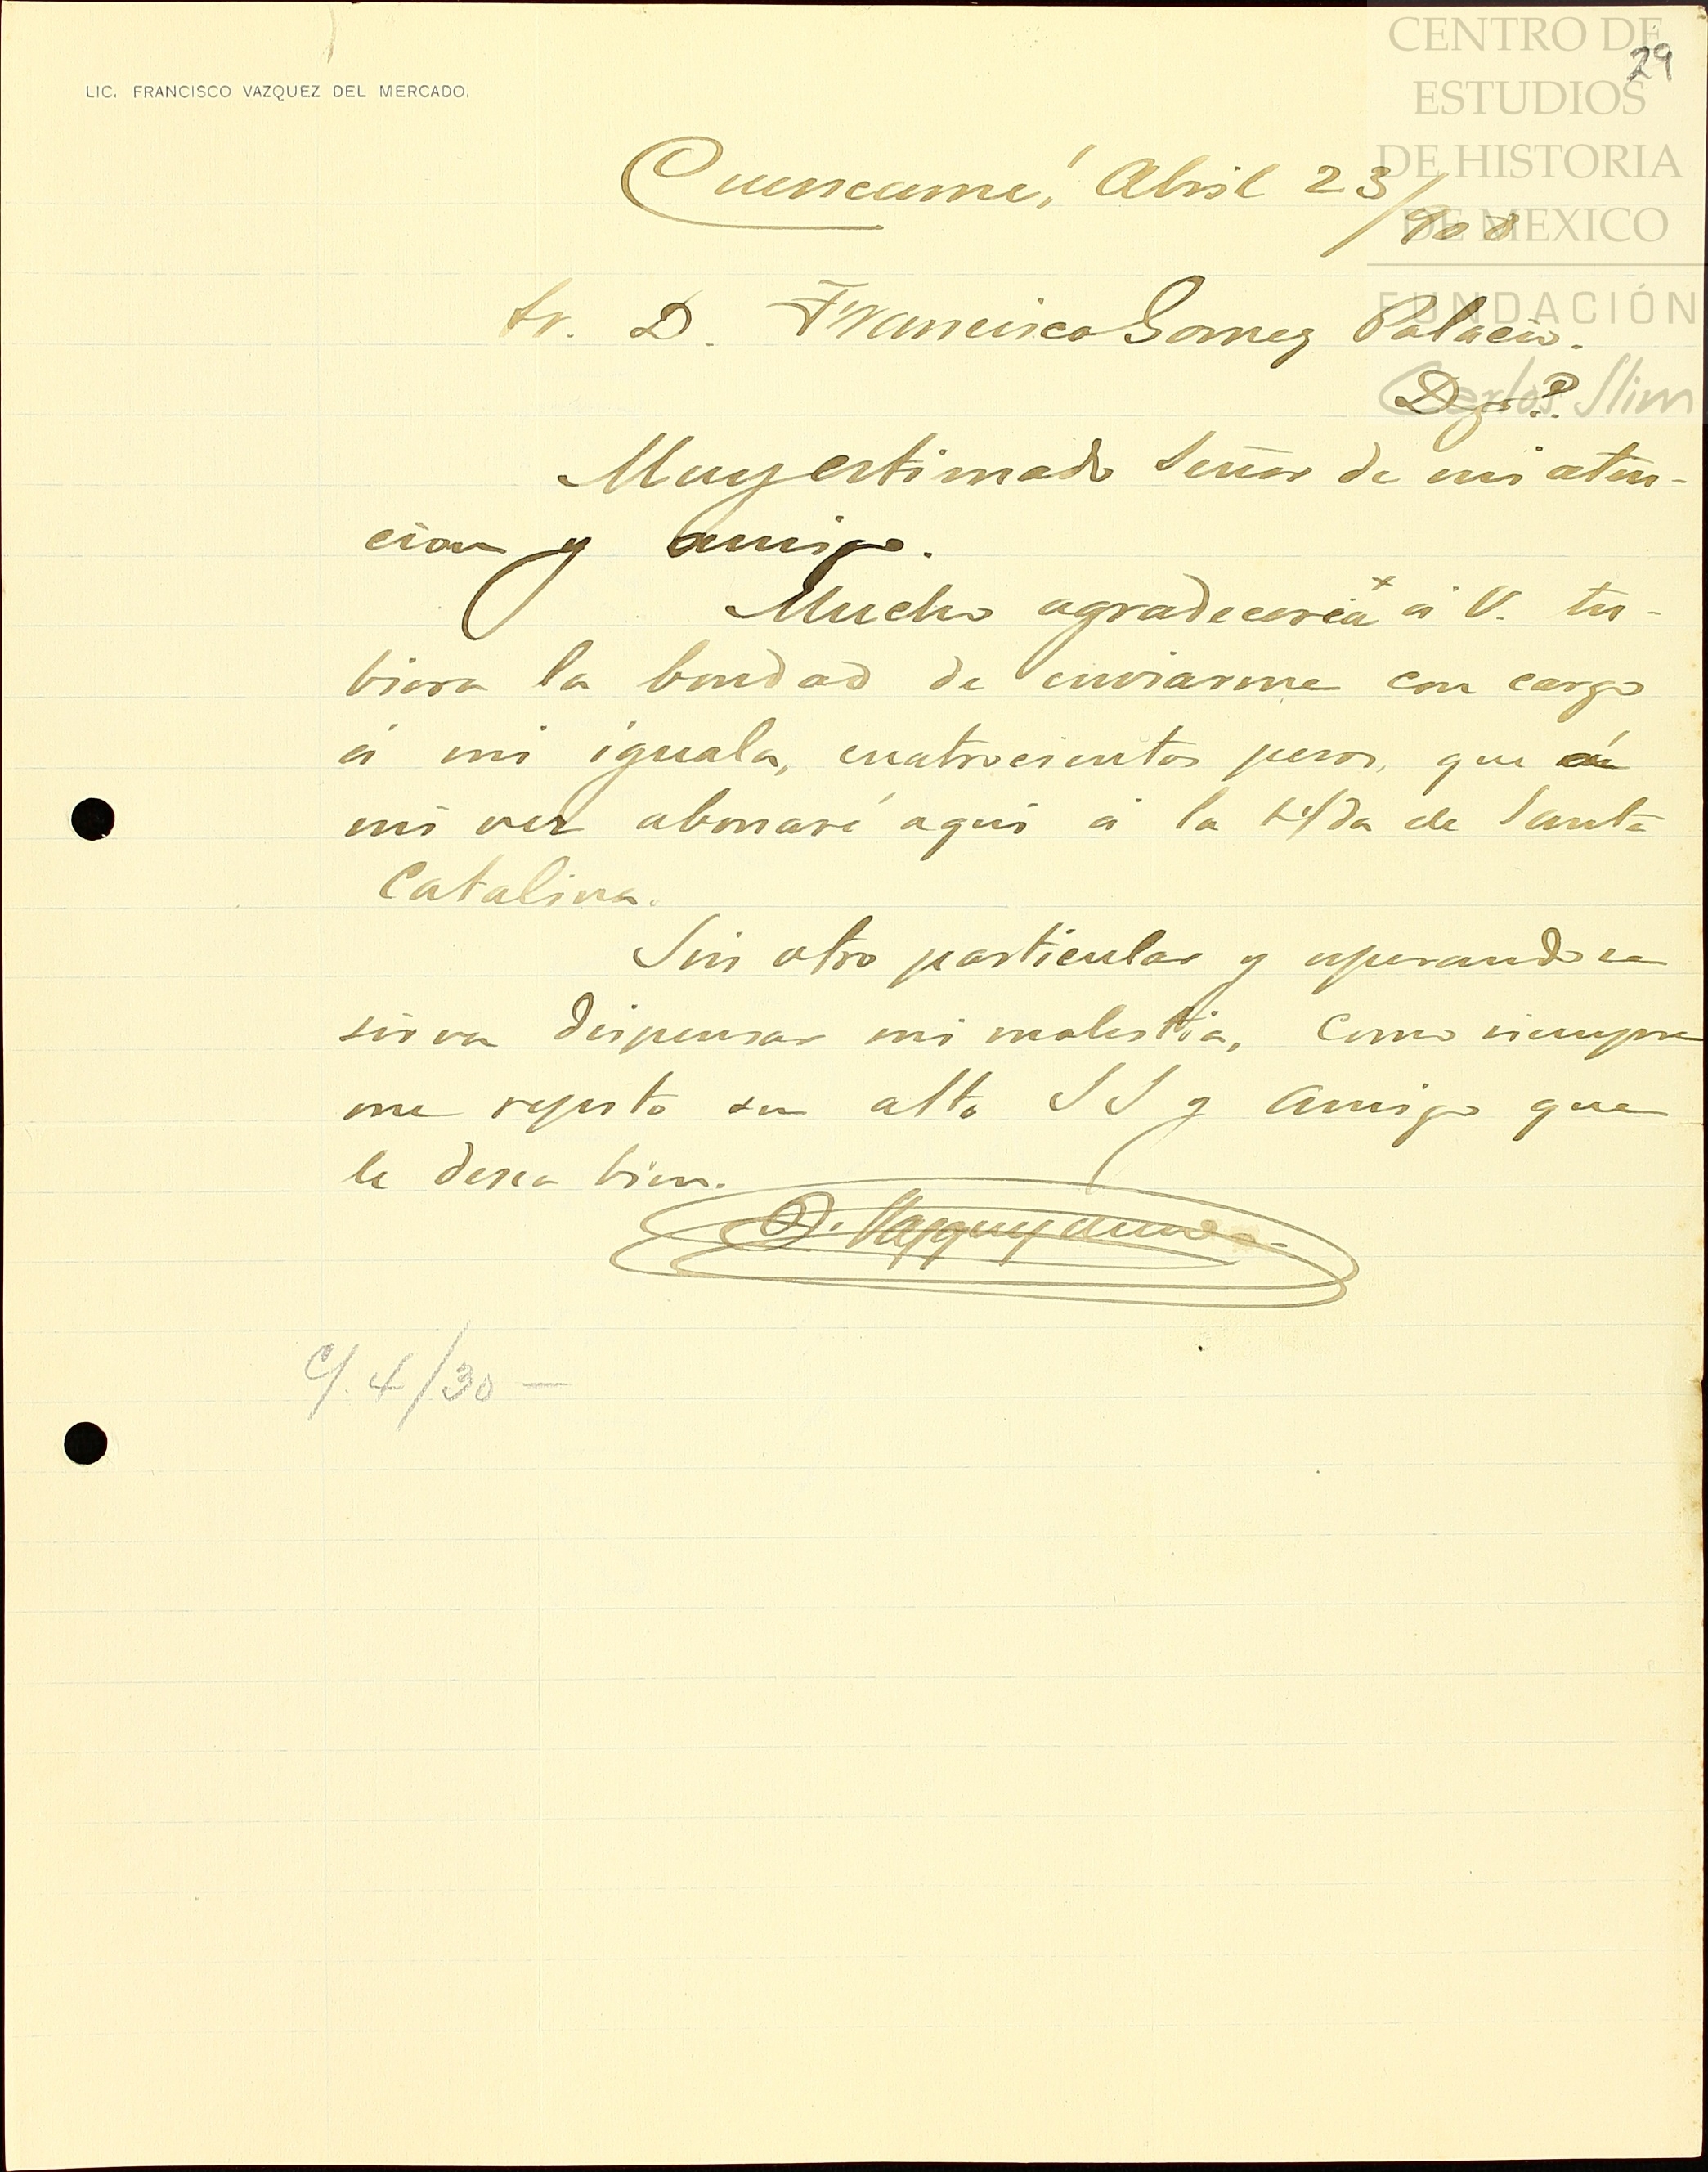 CENTRO DE
ESTUDIOS
DE HISTORIA
DE MEXICO
FUNDACIÓN
Carlos Slim
29
LIC. FRANCISCO VAZQUEZ DEL MERCADO.
Cuencamé, Abril 23/908
Sr. D. Francisco Gomez Palacio.
Dgo.
Muy estimado Señor de mi aten-
cion y amigo.
Mucho agradeceria á V. tu-
biera la bondad de enviarme con cargo
á mi iguala, cuatrocientos pesos, que á
mi vez abonaré aqui á la H/da de Santa
Catalina.
Sin otro particular y esperando se
sirva dispensar mi molestia, como siempre
me repito su atto S S y amigo que
le desea bien.
C/. 4/30 —